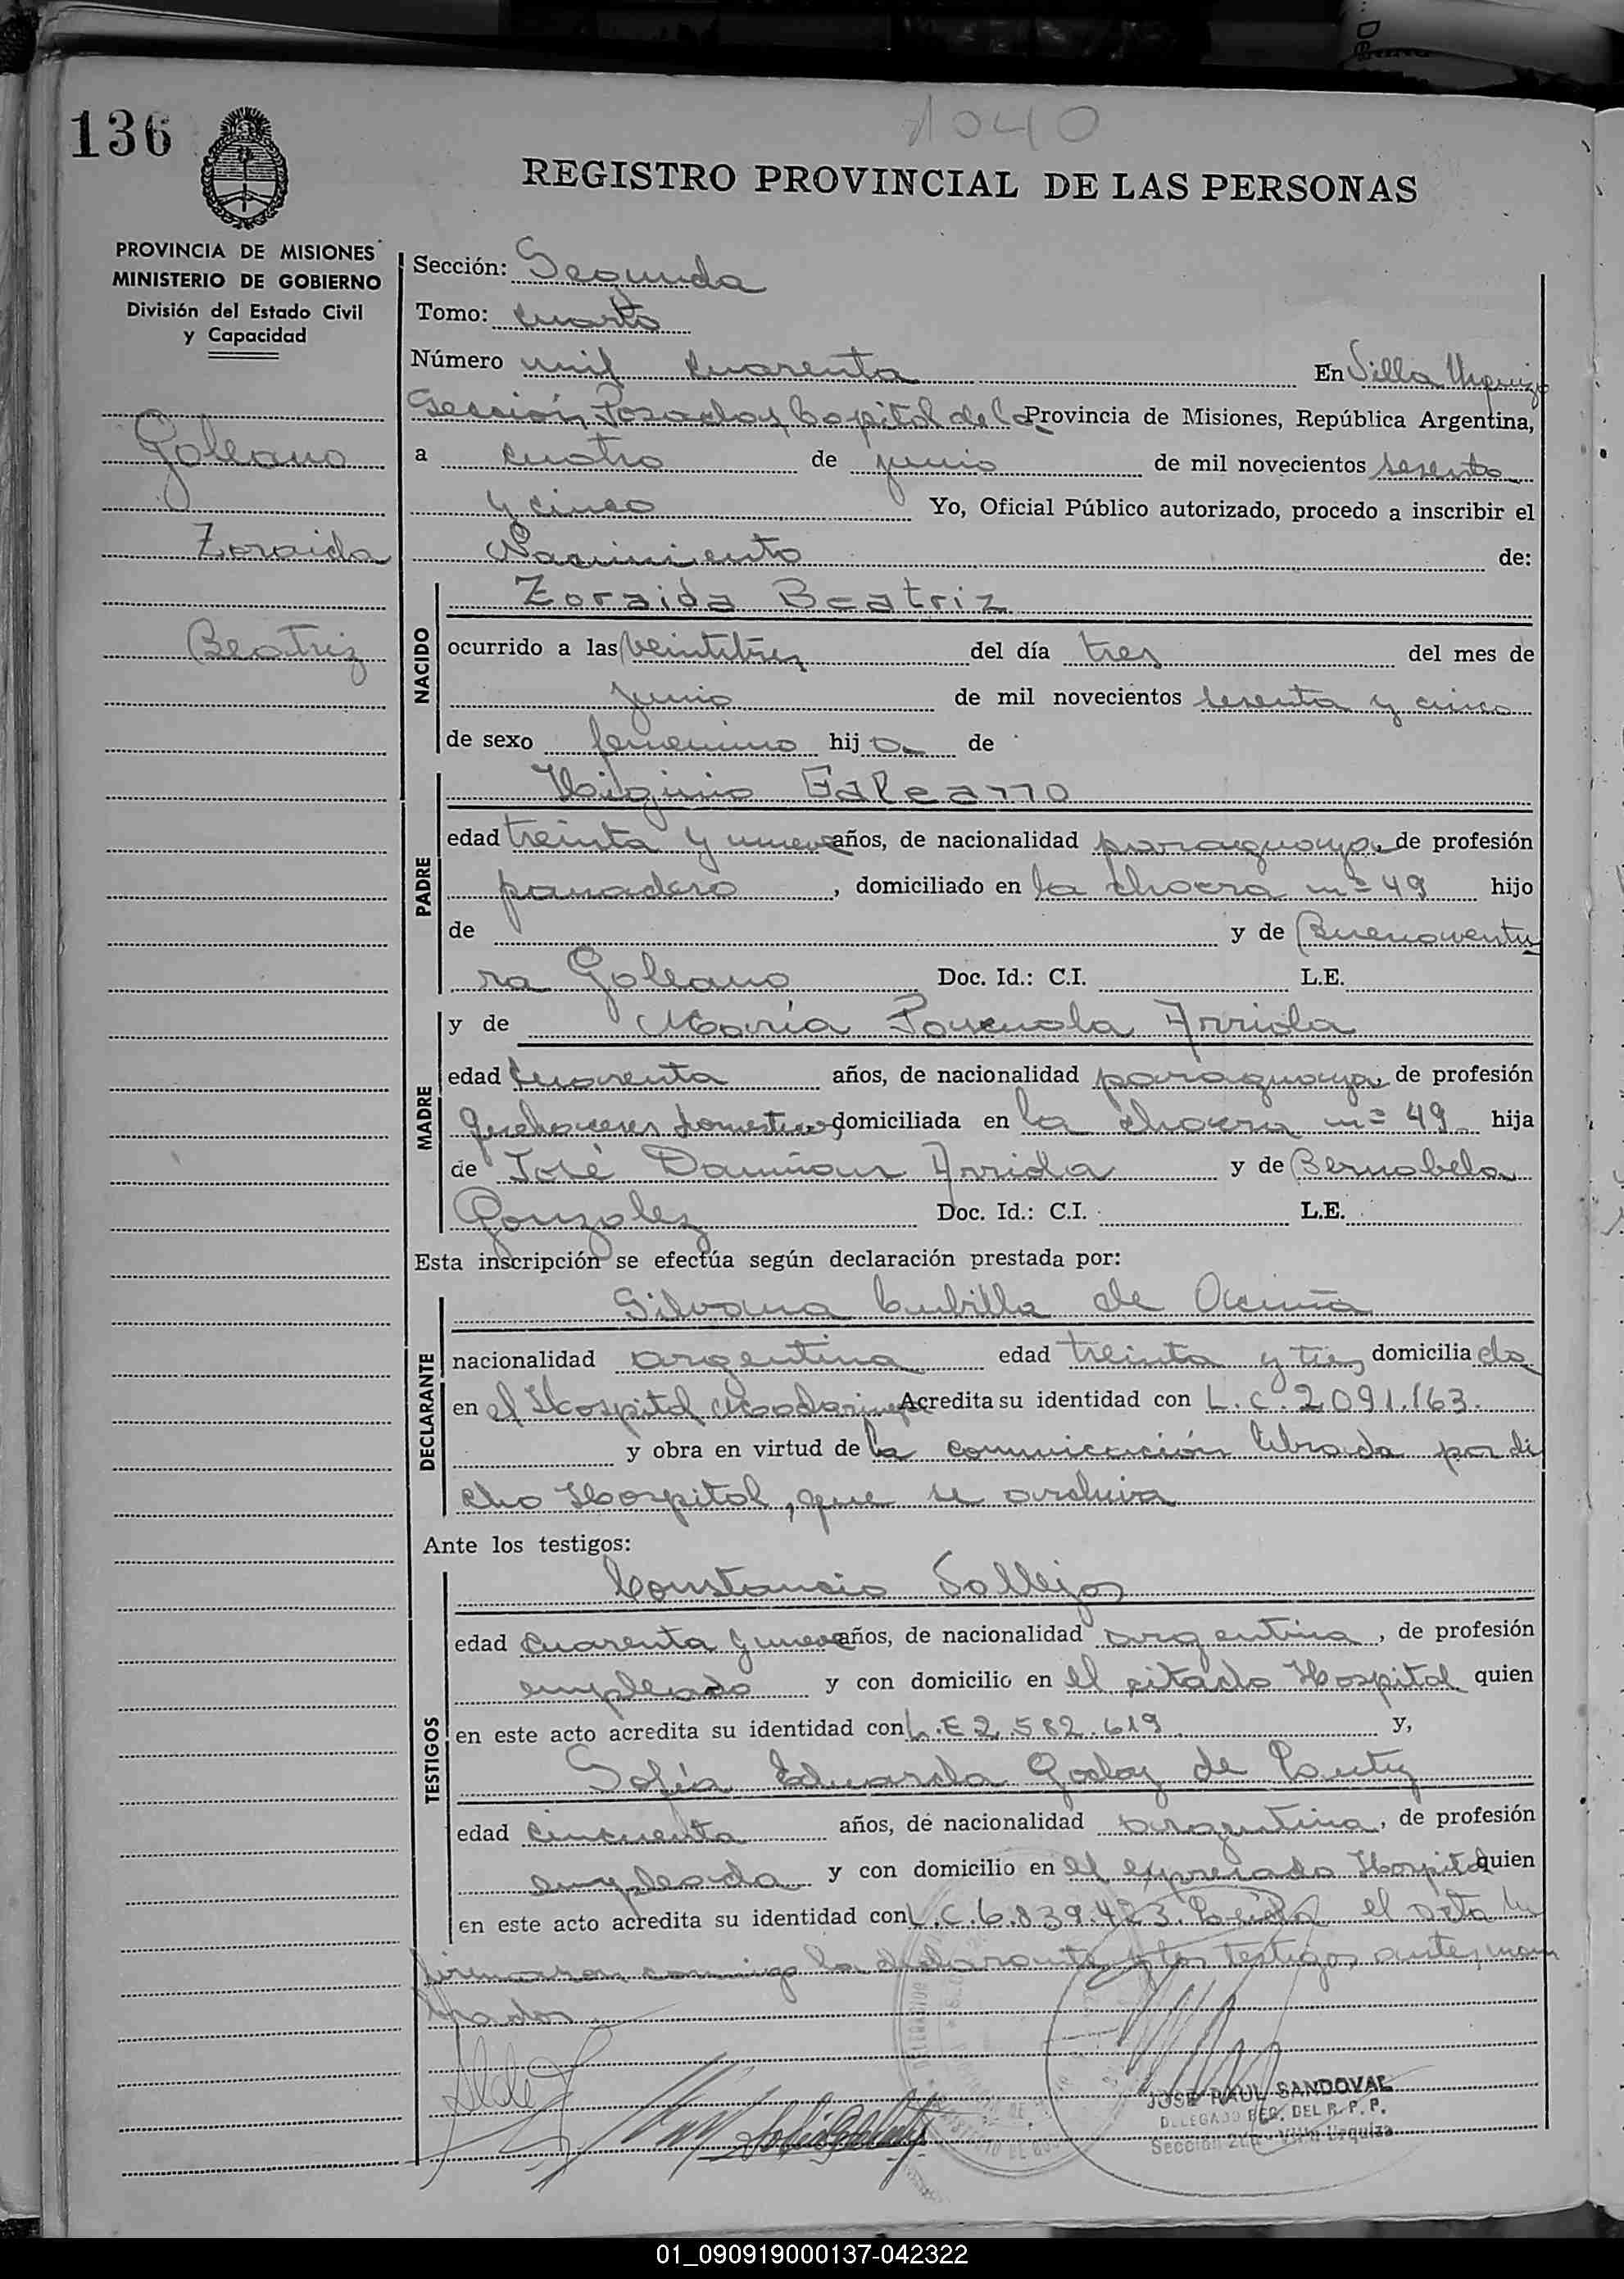 136
1040
REGISTRO PROVINCIAL DE LAS PERSONAS
PROVINCIA DE MISIONES
MINISTERIO DE GOBIERNO
División del Estado Civil
y Capacidad
Galeano
Zoraida
Beatriz
Sección: Segunda
Tomo: cuarto
Número mil cuarenta En Villa Urquiza
Sección Posadas, Capital de la Provincia de Misiones, República Argentina,
a cuatro de junio de mil novecientos sesenta
y cinco Yo, Oficial Público autorizado, procedo a inscribir el
Nacimiento de:
NACIDO
Zoraida Beatriz
ocurrido a las veintitres del día tres del mes de
junio de mil novecientos sesenta y cinco
de sexo femenino hija de
PADRE
Higinio Galeano
edad treinta y nueve años, de nacionalidad paraguaya, de profesión
panadero, domiciliado en la chacra nº 49 hijo
de y de Buenaventu
ra Galeano Doc. Id.: C.I. L.E.
MADRE
y de María Arriola
edad cuarenta años, de nacionalidad paraguaya, de profesión
quehaceres domesticos domiciliada en la chacra nº 49 hija
de José Damian Arriola y de Bernabela
Gonzalez Doc. Id.: C.I. L.E.
Esta inscripción se efectúa según declaración prestada por:
DECLARANTE
Silvana Cubilla de Acuña
nacionalidad argentina edad treinta y tres, domiciliada
en el Hospital Madariaga Acredita su identidad con L.C. 2.091.163.
y obra en virtud de la comunicación librada por di
cho Hospital, que se archiva
Ante los testigos:
TESTIGOS
Constancio Vallejos
edad cuarenta y nueve años, de nacionalidad argentina, de profesión
empleado y con domicilio en el citado Hospital quien
en este acto acredita su identidad con L.E 2.582.619 y,
Sofía Eduarda Godoy de
edad cincuenta años, de nacionalidad argentina, de profesión
empleada y con domicilio en el expresado Hospital quien
en este acto acredita su identidad con L.C. 6.839.423. Leída el acta la
firmaron conmigo la declarante y los testigos antes nom
brados.
JOSE RAUL SANDOVAL
DELEGADO REG. DEL R. P. P.
Sección 2da - Villa Urquiza
01_090919000137-042322